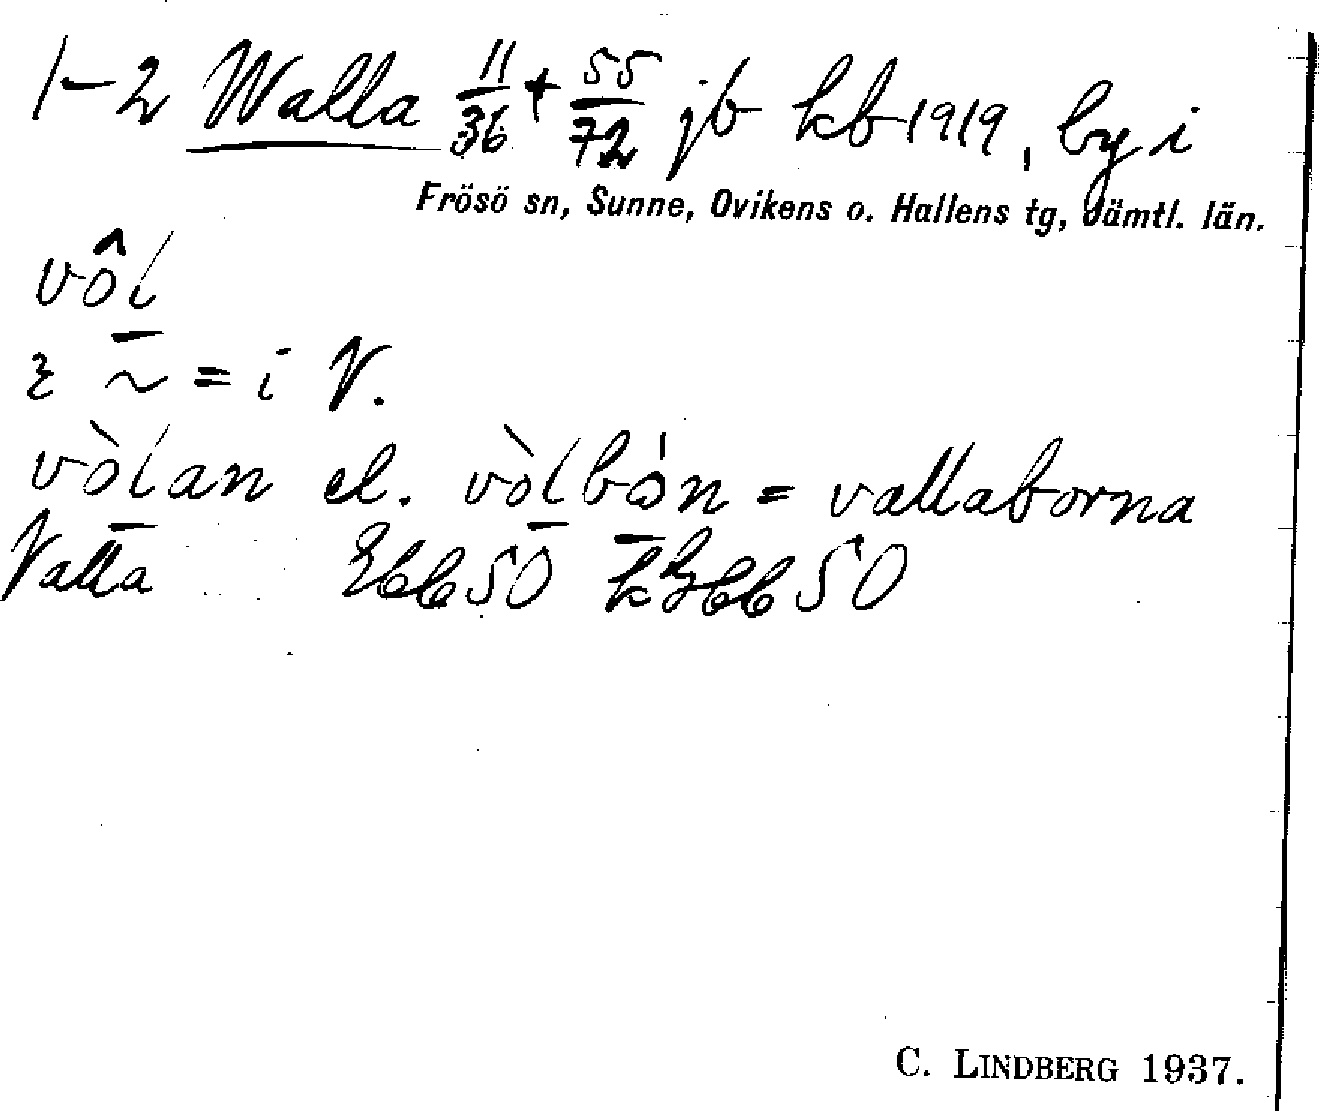 1-2 Walla 11/36 + 55/72 jb kb 1919, by i
Frösö sn, Sunne, Ovikens o. Hallens tg, Jämtl. län.
vôl
ɛ ~ = i V.
vòlan el. vòlbón = vallaborna
Valla Ebb50 kEbb50
C. LINDBERG 1937.